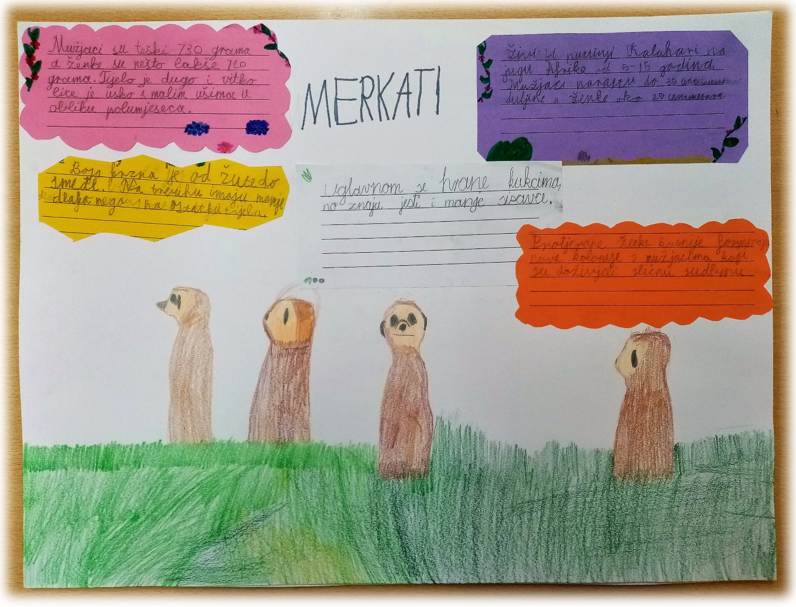 Mužjaci su teški 730 grama
a ženke su nešto lakše 720
grama. Tijelo je dugo i vitko
lice je usko s malim ušima u
obliku polumjeseca.
MERKATI
Živi u pustinji Kalahari na
jugu Afrike od 5-15 godina.
Mužjaci narastu do
duljine a ženke oko centimetara
Boja krzna je od žute do
smeđe. Na trbuhu imaju manje
dlake nego na ostatku tijela.
Uglavnom se hrane kukcima,
no znaju jesti i manje sisavce.
Protjerane ženke kasnije
nove kolonije s mužjacima koji
su doživjeli sličnu sudbinu